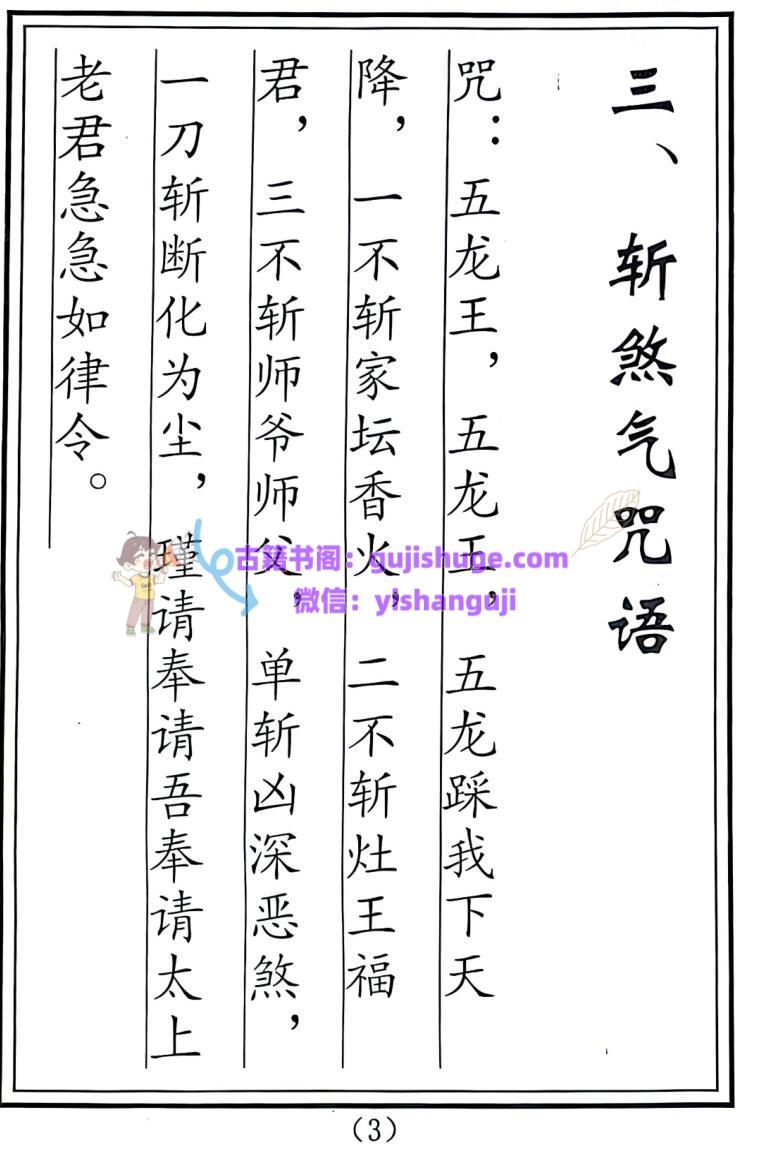 三、斩煞气咒语
咒：五龙王，五龙王，五龙踩我下天
降，一不斩家坛香火，二不斩灶王福
君，三不斩师爷师父，单斩凶深恶煞，
一刀斩断化为尘，瑾请奉请吾奉请太上
老君急急如律令。
古籍书阁：gujishuge.com
微信：yishanguji
（3）